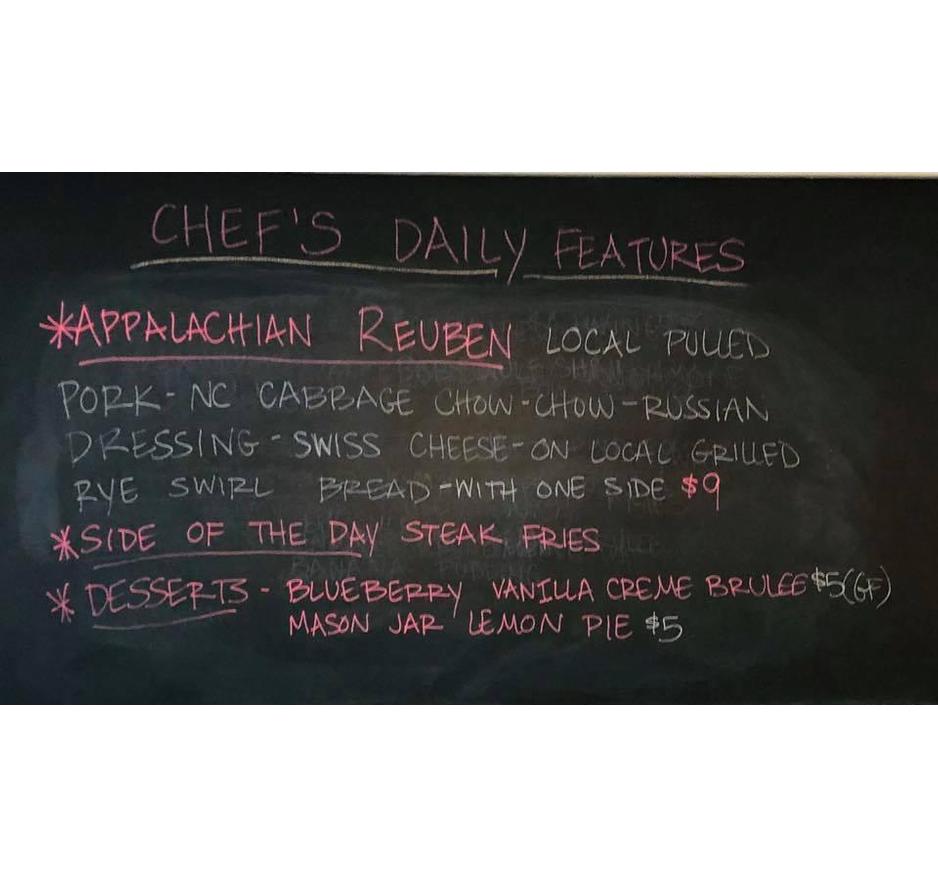 CHEF'S DAILY FEATURES
*APPALACHIAN REUBEN LOCAL PULLED
PORK- NC CABBAGE CHOW-CHOW-RUSSIAN
DRESSING-SWISS CHEESE-ON LOCAL GRILLED
RYE SWIRL BREAD-WITH ONE SIDE $9
*SIDE OF THE DAY STEAK FRIES
* DESSERTS - BLUEBERRY VANILLA CREME BRULEE $5(GF)
MASON JAR LEMON PIE $5